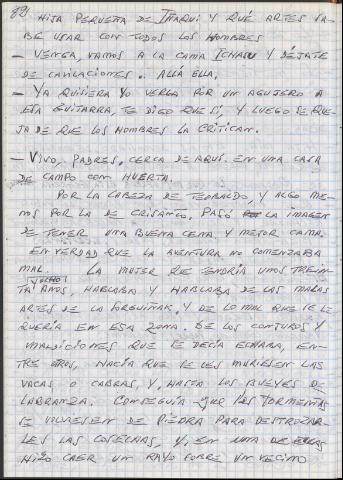 89)
HIJA PEQUEÑA DE IÑAQUI Y QUÉ ARTES SA-
BE USAR CON TODOS LOS HOMBRES
– VENGA, VAMOS A LA CAMA ICHASU Y DÉJATE
DE CAVILACIONES. ALLÁ ELLA.
– YA QUISIERA YO VERLA POR UN AGUJERO A
ESA GUITARRA, TE DIGO QUE SÍ, Y LUEGO SE QUE-
JA DE QUE LOS HOMBRES LA CRITICAN.
– VIVO, PADRES, CERCA DE AQUÍ. EN UNA CASA
DE CAMPO CON HUERTA.
POR LA CABEZA DE TEOBALDO, Y ALGO ME-
NOS POR LA DE CRISANCO, PASÓ LA IMAGEN
DE TENER UNA BUENA CENA Y MEJOR CAMA.
EN VERDAD QUE LA AVENTURA NO COMENZABA
MAL. LA MUJER QUE TENDRÍA UNOS TREIN-
TA AÑOS, HABLABA Y HABLABA DE LAS MALAS
MUCHO
ARTES DE LA SORGUIÑAK, Y DE LO MAL QUE SE LE
QUERÍA EN ESA ZONA. DE LOS CONJUROS Y
MALDICIONES QUE SE DECÍA ECHABA, EN-
TRE OTROS, HACÍA QUE SE LES MURIESEN LAS
VACAS O CABRAS, Y, HASTA LOS BUEYES DE
LABRANZA. CONSEGUÍA QUE LAS TORMENTAS
SE VOLVIESEN DE PIEDRA PARA DESTROZAR-
LES LAS COSECHAS, Y, EN UNA DE ELLAS
HIZO CAER UN RAYO SOBRE UN VECINO